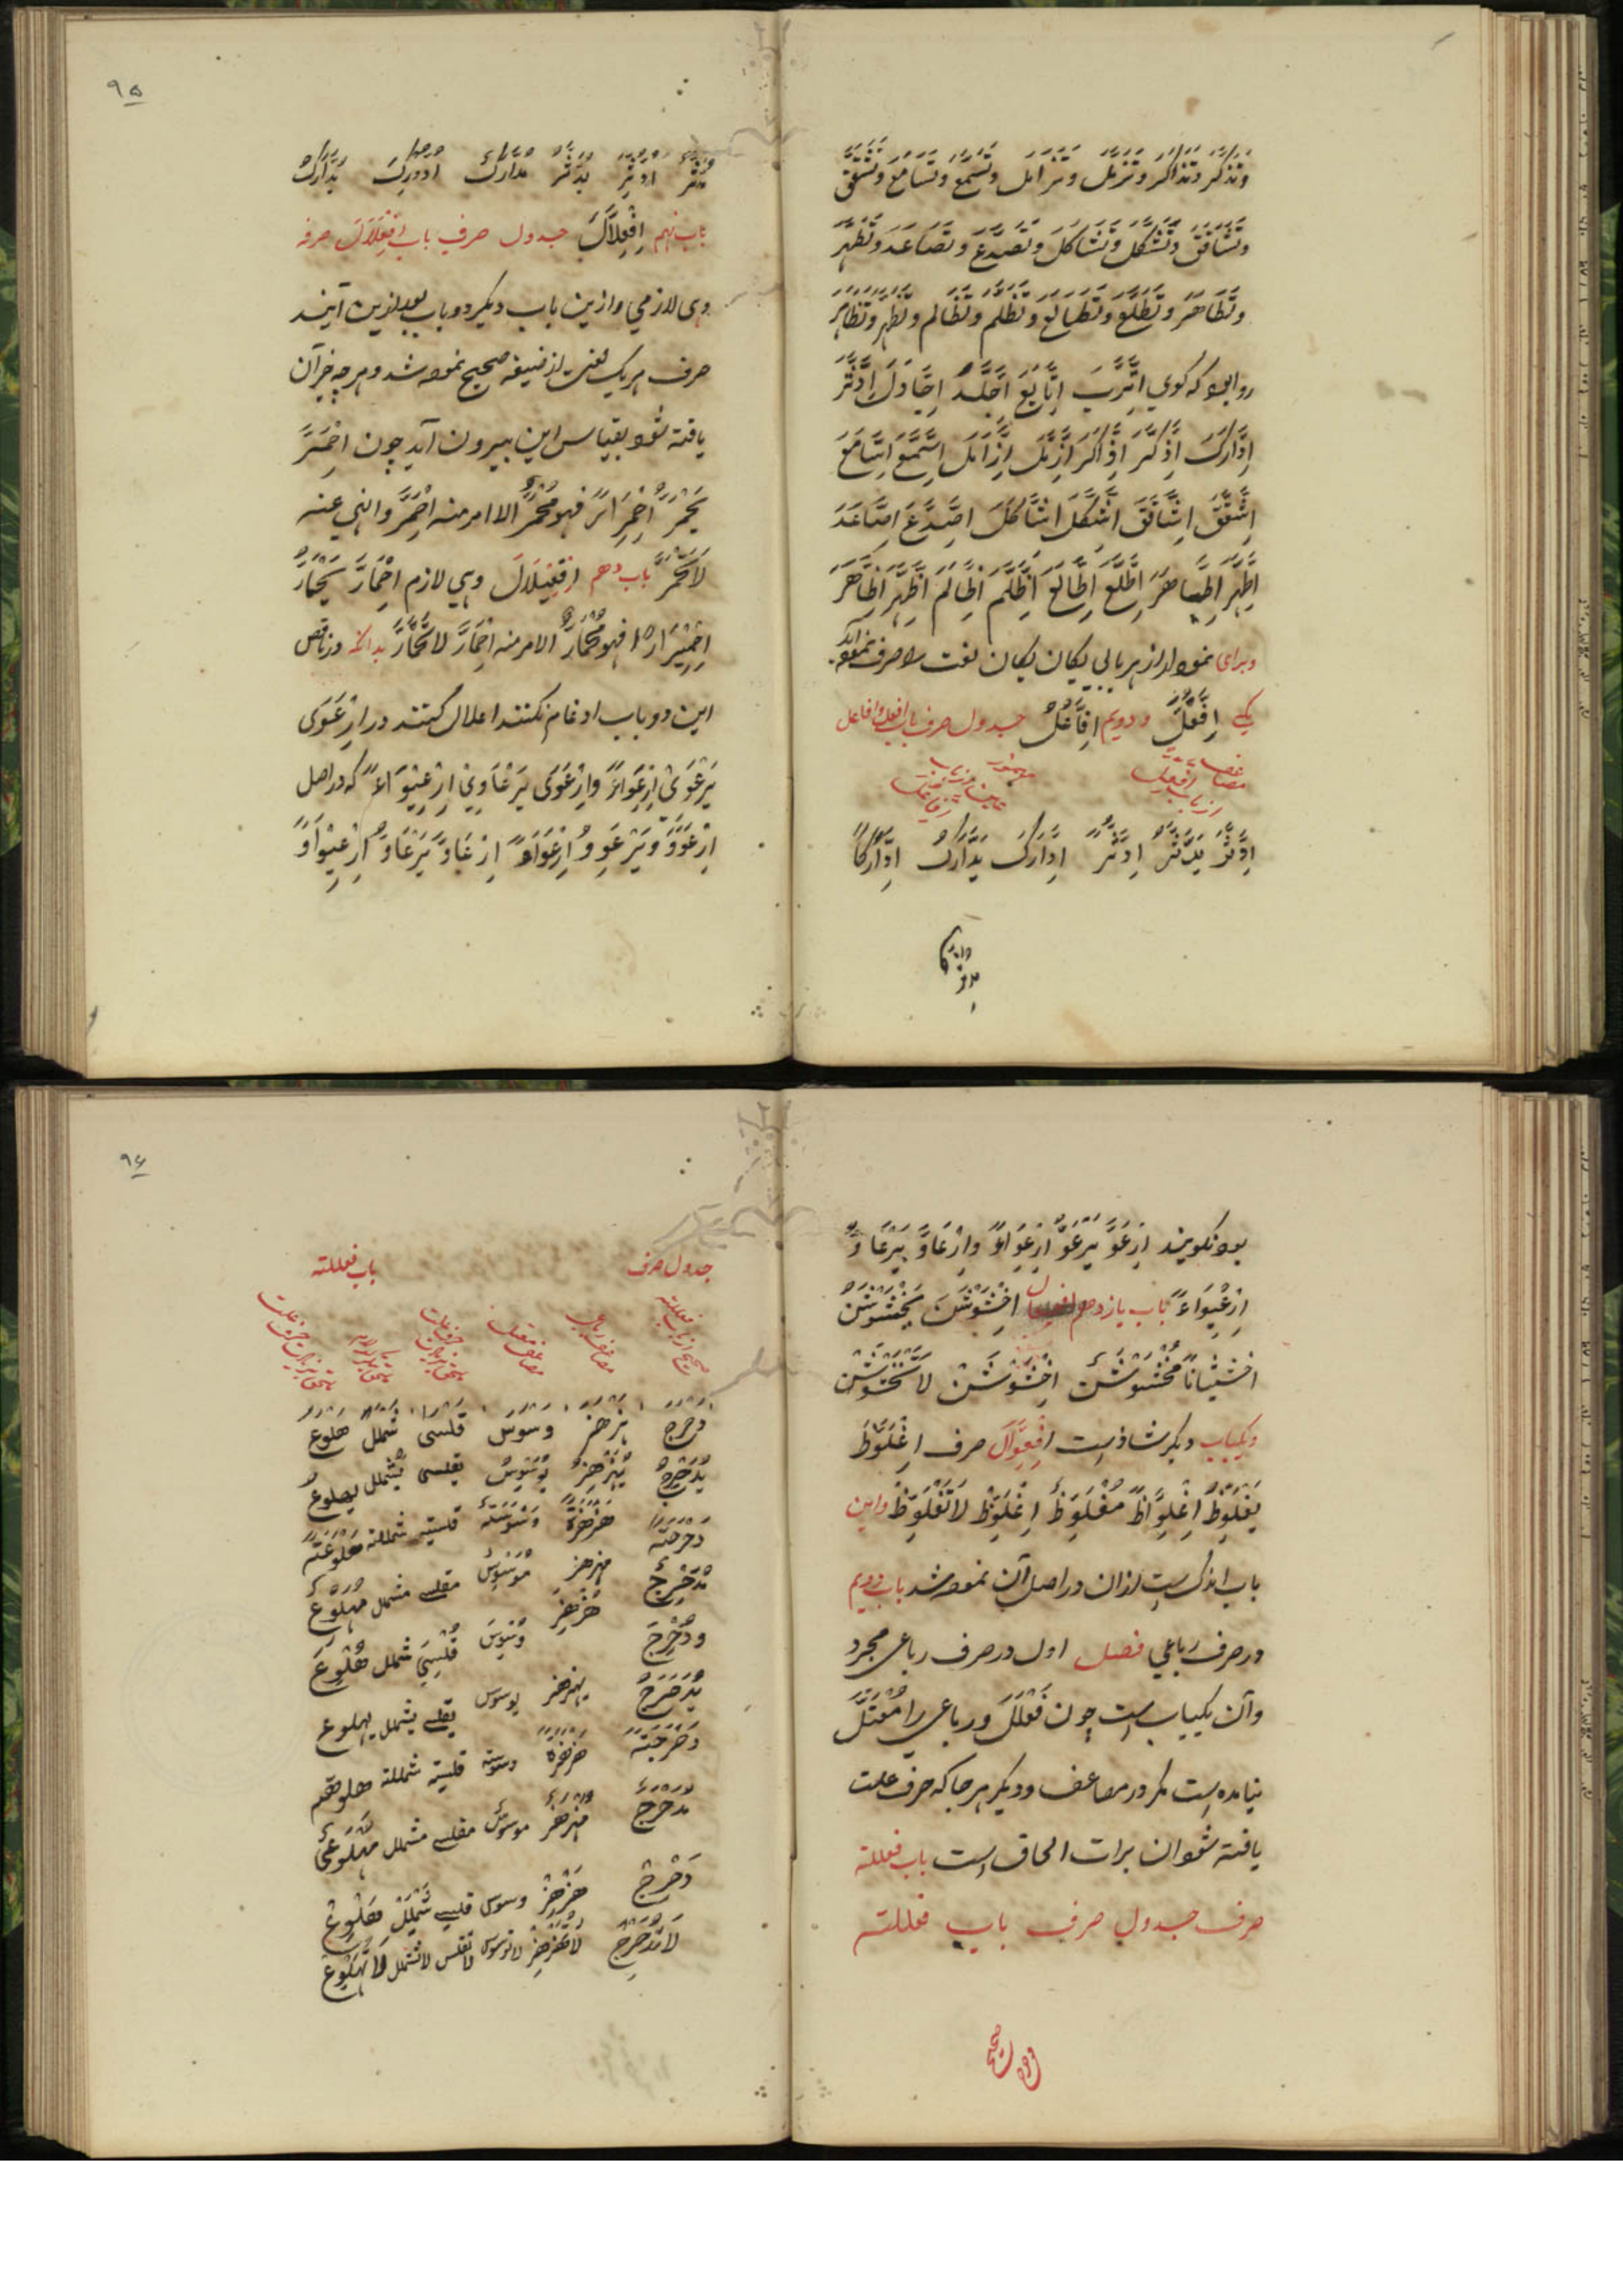 وتذكر وتذاكر وتزمل وتزامل وتسمع وتسامع وتشقق
وتشاقق وتشكل وتشاكل وتصدع وتصاعد وتطهر
وتطاهر وتطلع وتطالع وتظلم وتظالم وتظهر وتظاهر
روا بود که کوی اترب اتابع اجلد اجادل ادثر
ادارك اذكر اذاكر ازمل ازامل اسمع اسامع
اشقق اشاقق اشكل اشاكل اصدع اصاعد
اطهر اطاهر اطلع اطالع اظلم اظالم اظهر اظاهر
وبرای نمودار از هر بابی یکان یکان لغت را صرف نموده
یکی افعل ودویم افاعل جدول صرف باب افعل وافاعل
ادثر يدثر ادثرا ادارك يدارك اداركا
۹۵
مدثر ادثر يدثر مدارك ادورك يدارك
باب نهم افعلال جدول صرف باب افعلال صرفه
وهی لازمی وازین باب ودیکر دو باب بعد ازین آیند
صرف هریک لغت از ضیغه صحیح نموده شد وهرچه جز آن
یافته شود بقیاس این بیرون آید چون احمر
يحمر احمرارا فهو محمر الامر منه احمر والنهی عنه
لا تحمر باب دهم افعیلال وهی لازم احمار يحمار
احميرارا فهو محمار الامر منه احمار لا تحمار بدانکه در ناقص
این دو باب ادغام نکنند اعلال کنند در ارعوى
يرعوى ارعواء وارعاوى يرعاوى ارعيواء که در اصل
ارعوو ويرعوو ارعواو ارعاو يرعاو ارعيواو
بود نکویند ارعو يرعو ارعواء وارعاو يرعاو
ارعيواء باب یازدهم افعیعال اخشوشن يخشوشن
اخشيشانا مخشوشن اخشوشن لا تخشوشن
ویکباب دیکر شاذ است افعوال صرف اغلوظ
يغلوظ اغلواظا مغلوظ اغلوظ لا تغلوظ واین
باب اندک است از ان در اصل آن نموده شد باب دویم
در صرف رباعی فصل اول در صرف رباعی مجرد
وآن یکباب است چون فعلل ورباعی را معتل
نیامده است مکر در مضاعف ودیکر هرجا که حرف علت
یافته شود ان برات الحاق است باب فعللة
صرف جدول صرف باب فعللة
۹۶
جدول صرف باب فعللة
دحرج هزهز وسوس قلسى شملل هلوع
يدحرج يهزهز يوسوس يقلسى يشملل يهلوع
دحرجة هزهزة وسوسة قلسية شمللة هلوعة
مدحرج مهزهز موسوس مقلسى مشملل مهلوع
ودحرج هزهز وسوس قلسى شملل هلوع
يدحرج يهزهز يوسوس يقلسى يشملل يهلوع
دحرجة هزهزة وسوسة قلسية شمللة هلوعة
مدحرج مهزهز موسوس مقلسى مشملل مهلوع
دحرج هزهز وسوس قلسى شملل هلوع
لا تدحرج لا تهزهز لا توسوس لا تقلس لا تشملل لا تهلوع